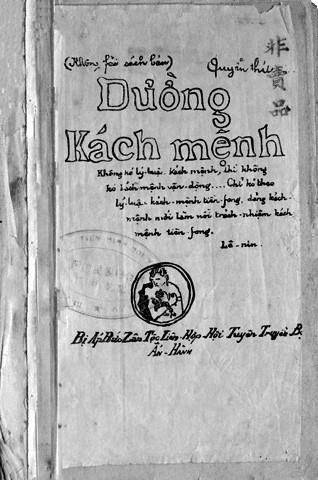 (Không fải sách bán)
Quyển thứ
非賣品
Đường
Kách mệnh
Không kó lý-luận kách mệnh, thì không
kó kách mệnh vận-động.... Chỉ kó theo
lý-luận kách-mệnh tiền-fong, đảng kách-
mệnh mới làm nổi trách-nhiệm kách
mệnh tiền-fong.
Lê-nin.
Bị Áp Bức Zân Tộc Liên-Hợp-Hội Tuyên Truyền Bộ
Ấn-Hành